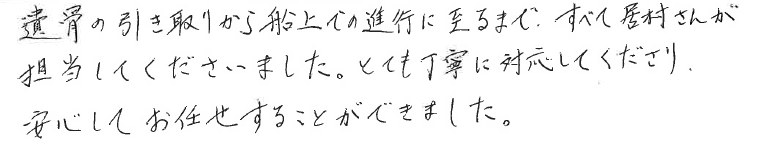 遺骨の引き取りから船上での進行に至るまで、すべて居村さんが
担当してくださいました。とても丁寧に対応してくださり、
安心してお任せすることができました。